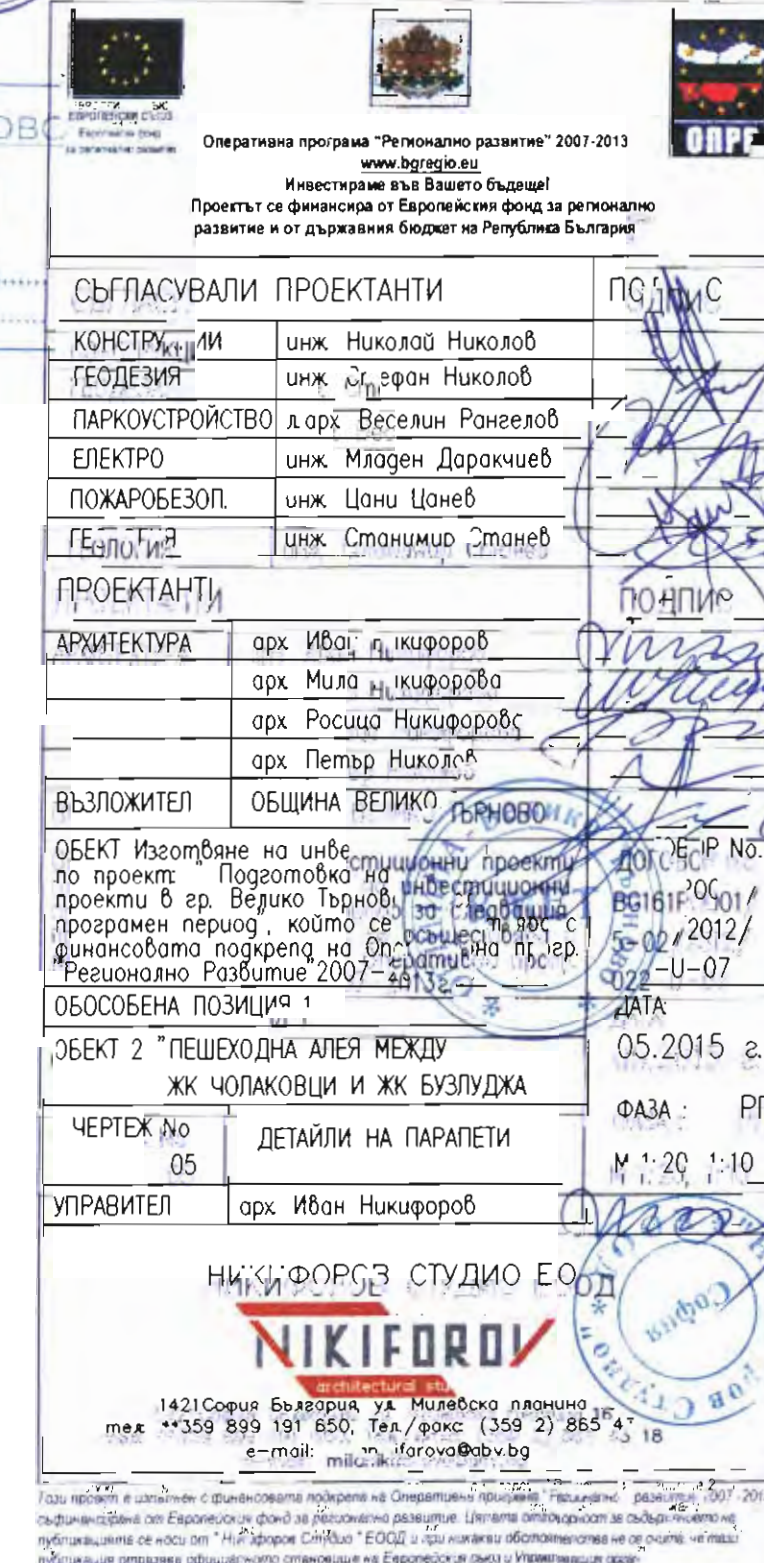 ЕВРОПЕЙСКИ СЪЮЗ
Европейски фонд
за регионално развитие
ОПРР
Оперативна програма "Регионално развитие" 2007-2013
www.bgregio.eu
Инвестираме във Вашето бъдеще!
Проектът се финансира от Европейския фонд за регионално
развитие и от държавния бюджет на Република България
СЪГЛАСУВАЛИ ПРОЕКТАНТИ ПОДПИС
КОНСТРУКЦИИ инж. Николай Николов
ГЕОДЕЗИЯ инж. Стефан Николов
ПАРКОУСТРОЙСТВО л.арх. Веселин Рангелов
ЕЛЕКТРО инж. Младен Даракчиев
ПОЖАРОБЕЗОП. инж. Цани Цанев
ГЕОЛОГИЯ инж. Станимир Станев
ПРОЕКТАНТИ ПОДПИС
АРХИТЕКТУРА арх. Иван Никифоров
арх. Мила Никифорова
арх. Росица Никифорова
арх. Петър Николов
ВЪЗЛОЖИТЕЛ ОБЩИНА ВЕЛИКО ТЪРНОВО
ОБЕКТ Изготвяне на инвестиционни проекти
по проект: "Подготовка на инвестиционни
проекти в гр. Велико Търново за следващия
програмен период", който се осъществява с
финансовата подкрепа на Оперативна прогр.
"Регионално Развитие" 2007-2013г.
ДОГОВОР No.
BG161PO001/
5-02/2012/
022-U-07
ОБОСОБЕНА ПОЗИЦИЯ 1
ДАТА:
05.2015 г.
ОБЕКТ 2 "ПЕШЕХОДНА АЛЕЯ МЕЖДУ
ЖК ЧОЛАКОВЦИ И ЖК БУЗЛУДЖА
ФАЗА :
ЧЕРТЕЖ No
05
ДЕТАЙЛИ НА ПАРАПЕТИ
М 1:20, 1:10
УПРАВИТЕЛ арх. Иван Никифоров
НИКИФОРОВ СТУДИО ЕООД
София
NIKIFOROV
architectural stu
1421 София България, ул. Милевска планина 16
тел: **359 899 191 650, Тел./факс (359 2) 865 43 18
e-mail:
Този проект е изпълнен с финансовата подкрепа на Оперативна програма "Регионално развитие" 2007-201
съфинансирана от Европейския фонд за регионално развитие. Цялата отговорност за съдържанието на
публикацията се носи от "Никифоров Студио" ЕООД и при никакви обстоятелства не се счита, че тази
публикация отразява официалното становище на Европейския съюз и Управляващия орган